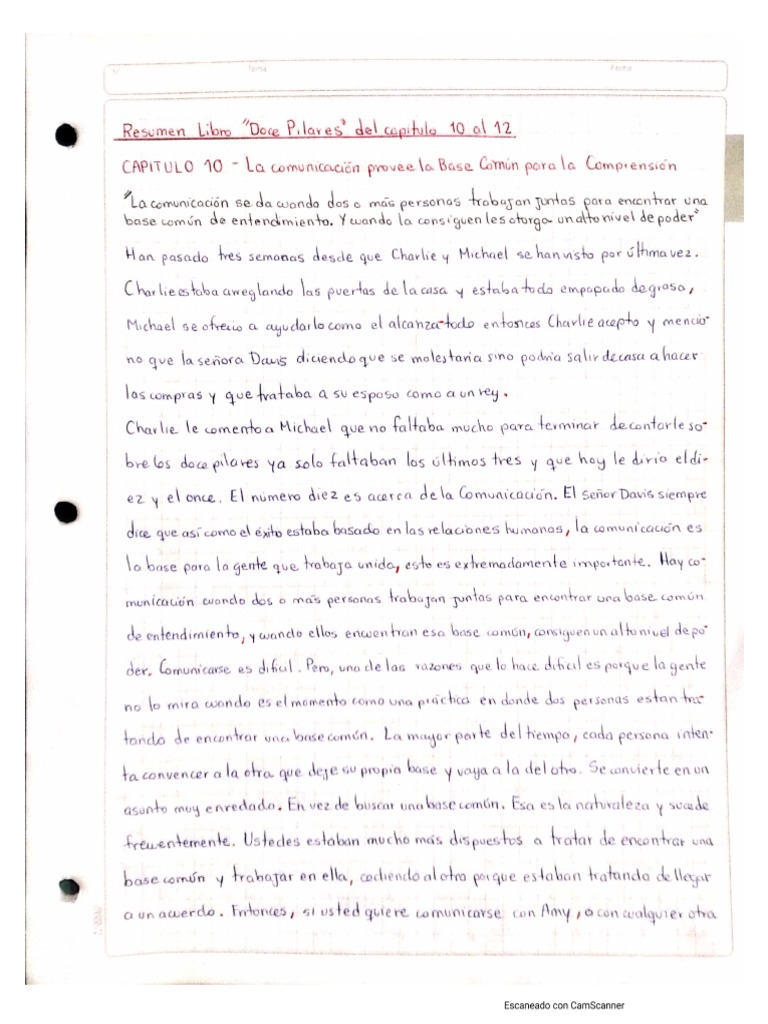 Tema Fecha
Resumen Libro "Doce Pilares" del capitulo 10 al 12
CAPITULO 10 - La comunicación provee la Base Común para la Comprensión
"La comunicación se da cuando dos o más personas trabajan juntas para encontrar una
base común de entendimiento. Y cuando la consiguen les otorga un alto nivel de poder"
Han pasado tres semanas desde que Charlie y Michael se han visto por última vez.
Charlie estaba arreglando las puertas de la casa y estaba todo empapado de grasa,
Michael se ofrecio a ayudarlo como el alcanza-todo entonces Charlie acepto y mencio-
no que la señora Davis diciendo que se molestaria sino podria salir de casa a hacer
las compras y que trataba a su esposo como a un rey.
Charlie le comento a Michael que no faltaba mucho para terminar de contarle so-
bre los doce pilares ya solo faltaban los últimos tres y que hoy le diria el di-
ez y el once. El número diez es acerca de la Comunicación. El Señor Davis siempre
dice que así como el éxito estaba basado en las relaciones humanas, la comunicación es
la base para la gente que trabaja unida, esto es extremadamente importante. Hay co-
municación cuando dos o más personas trabajan juntas para encontrar una base común
de entendimiento, y cuando ellos encuentran esa base común, consiguen un alto nivel de po-
der. Comunicarse es dificil. Pero, una de las razones que lo hace dificil es porque la gente
no lo mira cuando es el momento como una práctica en donde dos personas estan tra-
tando de encontrar una base común. La mayor parte del tiempo, cada persona inten-
ta convencer a la otra que deje su propia base y vaya a la del otro. Se convierte en un
asunto muy enredado. En vez de buscar una base común. Esa es la naturaleza y sucede
frecuentemente. Ustedes estaban mucho más dispuestos a tratar de encontrar una
base común y trabajar en ella, cediendo al otro porque estaban tratando de llegar
a un acuerdo. Entonces, si usted quiere comunicarse con Amy, o con cualquier otra
Escaneado con CamScanner